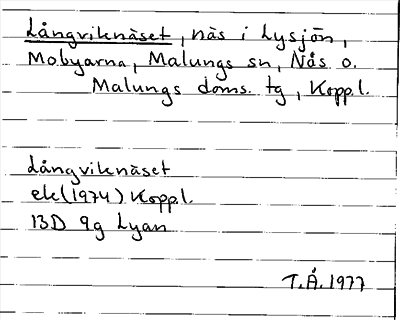 Långviknäset, näs i Lysjön,
Mobyarna, Malungs sn, Nås o.
Malungs doms. tg, Koppl.
Långviknäset
ek (1974) Koppl.
13D 9g Lyan
T.Å. 1977